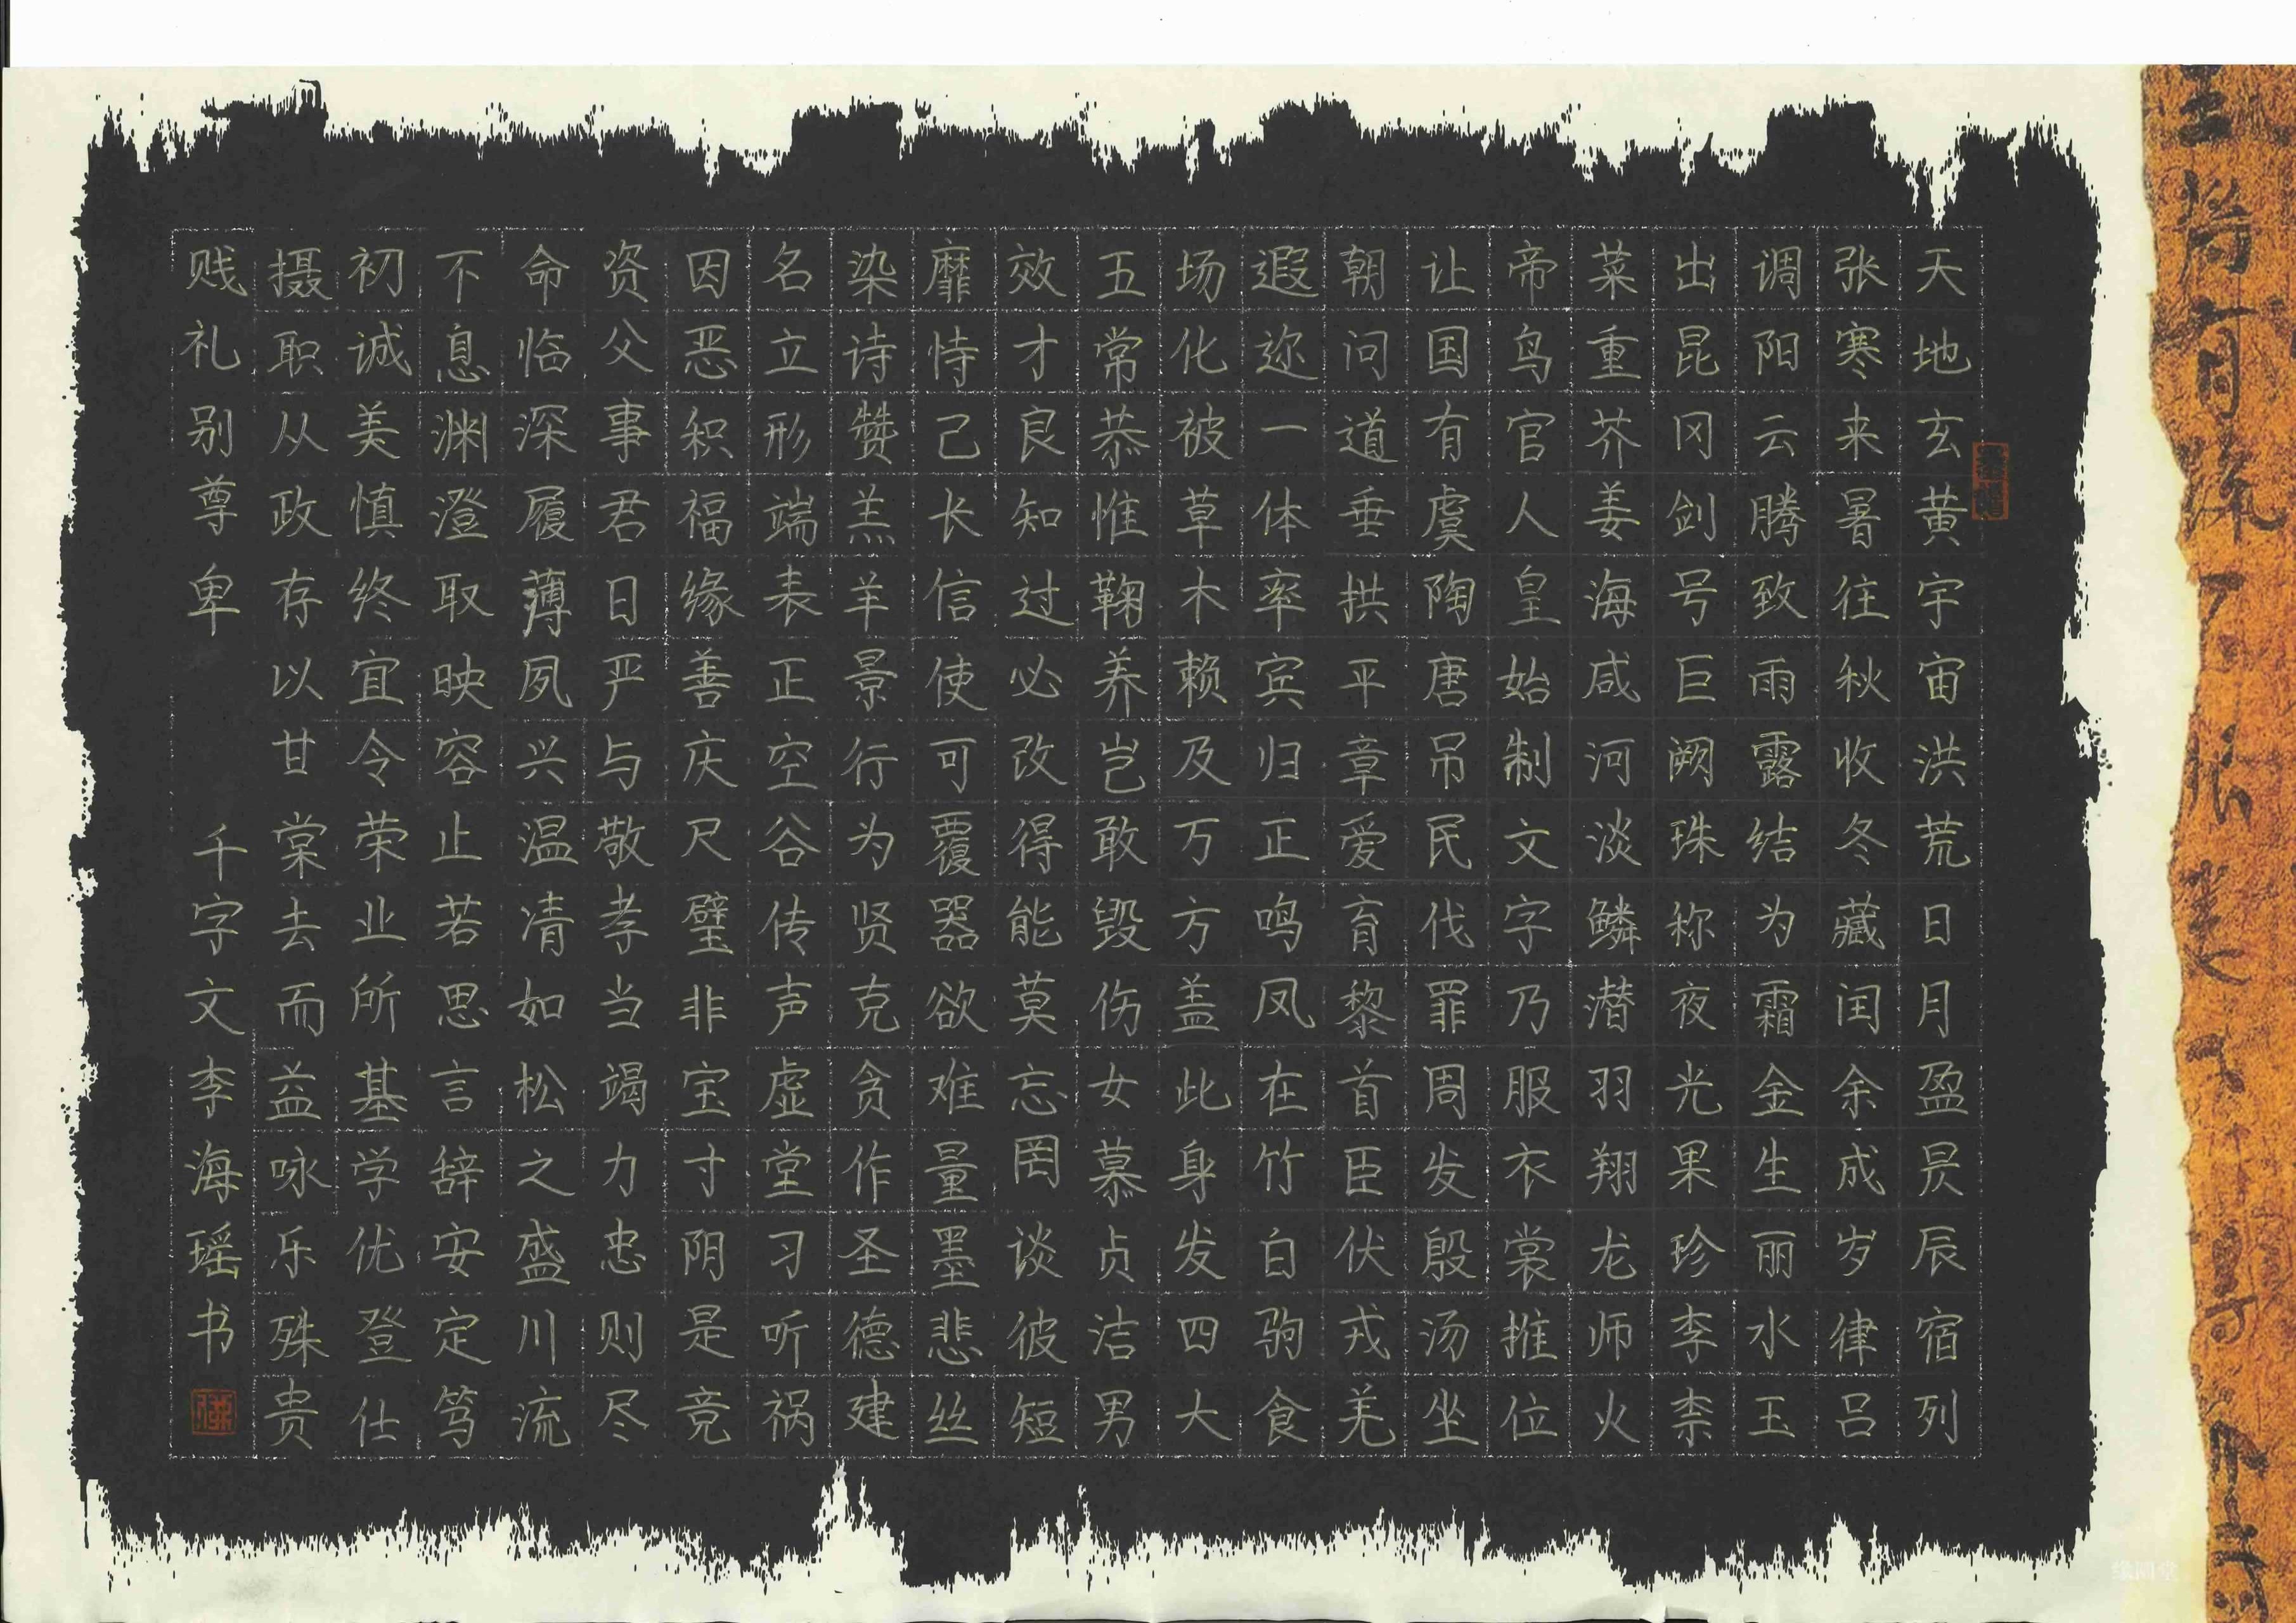 天地玄黄宇宙洪荒日月盈昃辰宿列
张寒来暑往秋收冬藏闰余成岁律吕
调阳云腾致雨露结为霜金生丽水玉
出昆冈剑号巨阙珠称夜光果珍李柰
菜重芥姜海咸河淡鳞潜羽翔龙师火
帝鸟官人皇始制文字乃服衣裳推位
让国有虞陶唐吊民伐罪周发殷汤坐
朝问道垂拱平章爱育黎首臣伏戎羌
遐迩一体率宾归正鸣凤在竹白驹食
场化被草木赖及万方盖此身发四大
五常恭惟鞠养岂敢毁伤女慕贞洁男
效才良知过必改得能莫忘罔谈彼短
靡恃己长信使可覆器欲难量墨悲丝
染诗赞羔羊景行为贤克贪作圣德建
名立形端表正空谷传声虚堂习听祸
因恶积福缘善庆尺璧非宝寸阴是竞
资父事君日严与敬孝当竭力忠则尽
命临深履薄夙兴温凊如松之盛川流
不息渊澄取映容止若思言辞安定笃
初诚美慎终宜令荣业所基学优登仕
摄职从政存以甘棠去而益咏乐殊贵
贱礼别尊卑 千字文李海瑶书